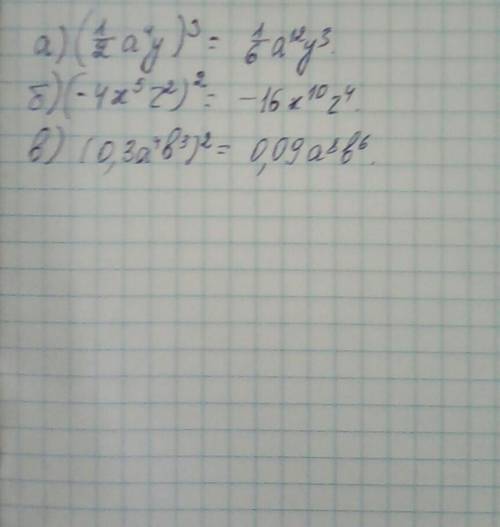 а) (1/2 a⁴y)³ = 1/6 a¹²y³.
б) (-4x⁵z²)² = -16x¹⁰z⁴.
в) (0,3a⁴b³)² = 0,09a⁸b⁶.